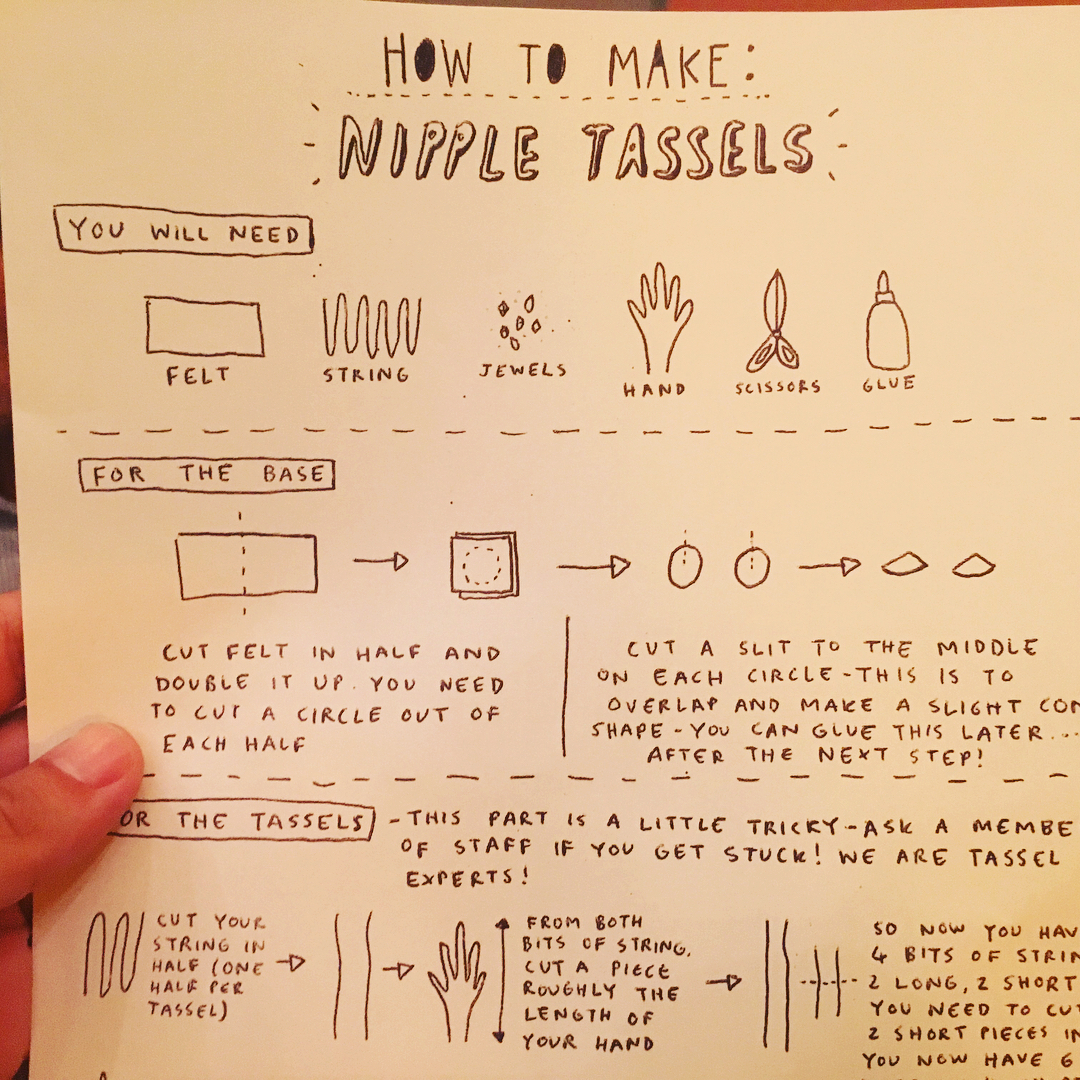 HOW TO MAKE:
NIPPLE TASSELS
YOU WILL NEED
FELT
STRING
JEWELS
HAND
SCISSORS
GLUE
FOR THE BASE
CUT FELT IN HALF AND
DOUBLE IT UP. YOU NEED
TO CUT A CIRCLE OUT OF
EACH HALF
CUT A SLIT TO THE MIDDLE
ON EACH CIRCLE - THIS IS TO
OVERLAP AND MAKE A SLIGHT CON
SHAPE - YOU CAN GLUE THIS LATER...
AFTER THE NEXT STEP!
OR THE TASSELS
- THIS PART IS A LITTLE TRICKY - ASK A MEMBE
OF STAFF IF YOU GET STUCK! WE ARE TASSEL
EXPERTS!
CUT YOUR
STRING IN
HALF (ONE
HALF PER
TASSEL)
FROM BOTH
BITS OF STRING,
CUT A PIECE
ROUGHLY THE
LENGTH OF
YOUR HAND
SO NOW YOU HAV
4 BITS OF STRIN
2 LONG, 2 SHORT
YOU NEED TO CUT
2 SHORT PIECES IN
YOU NOW HAVE 6